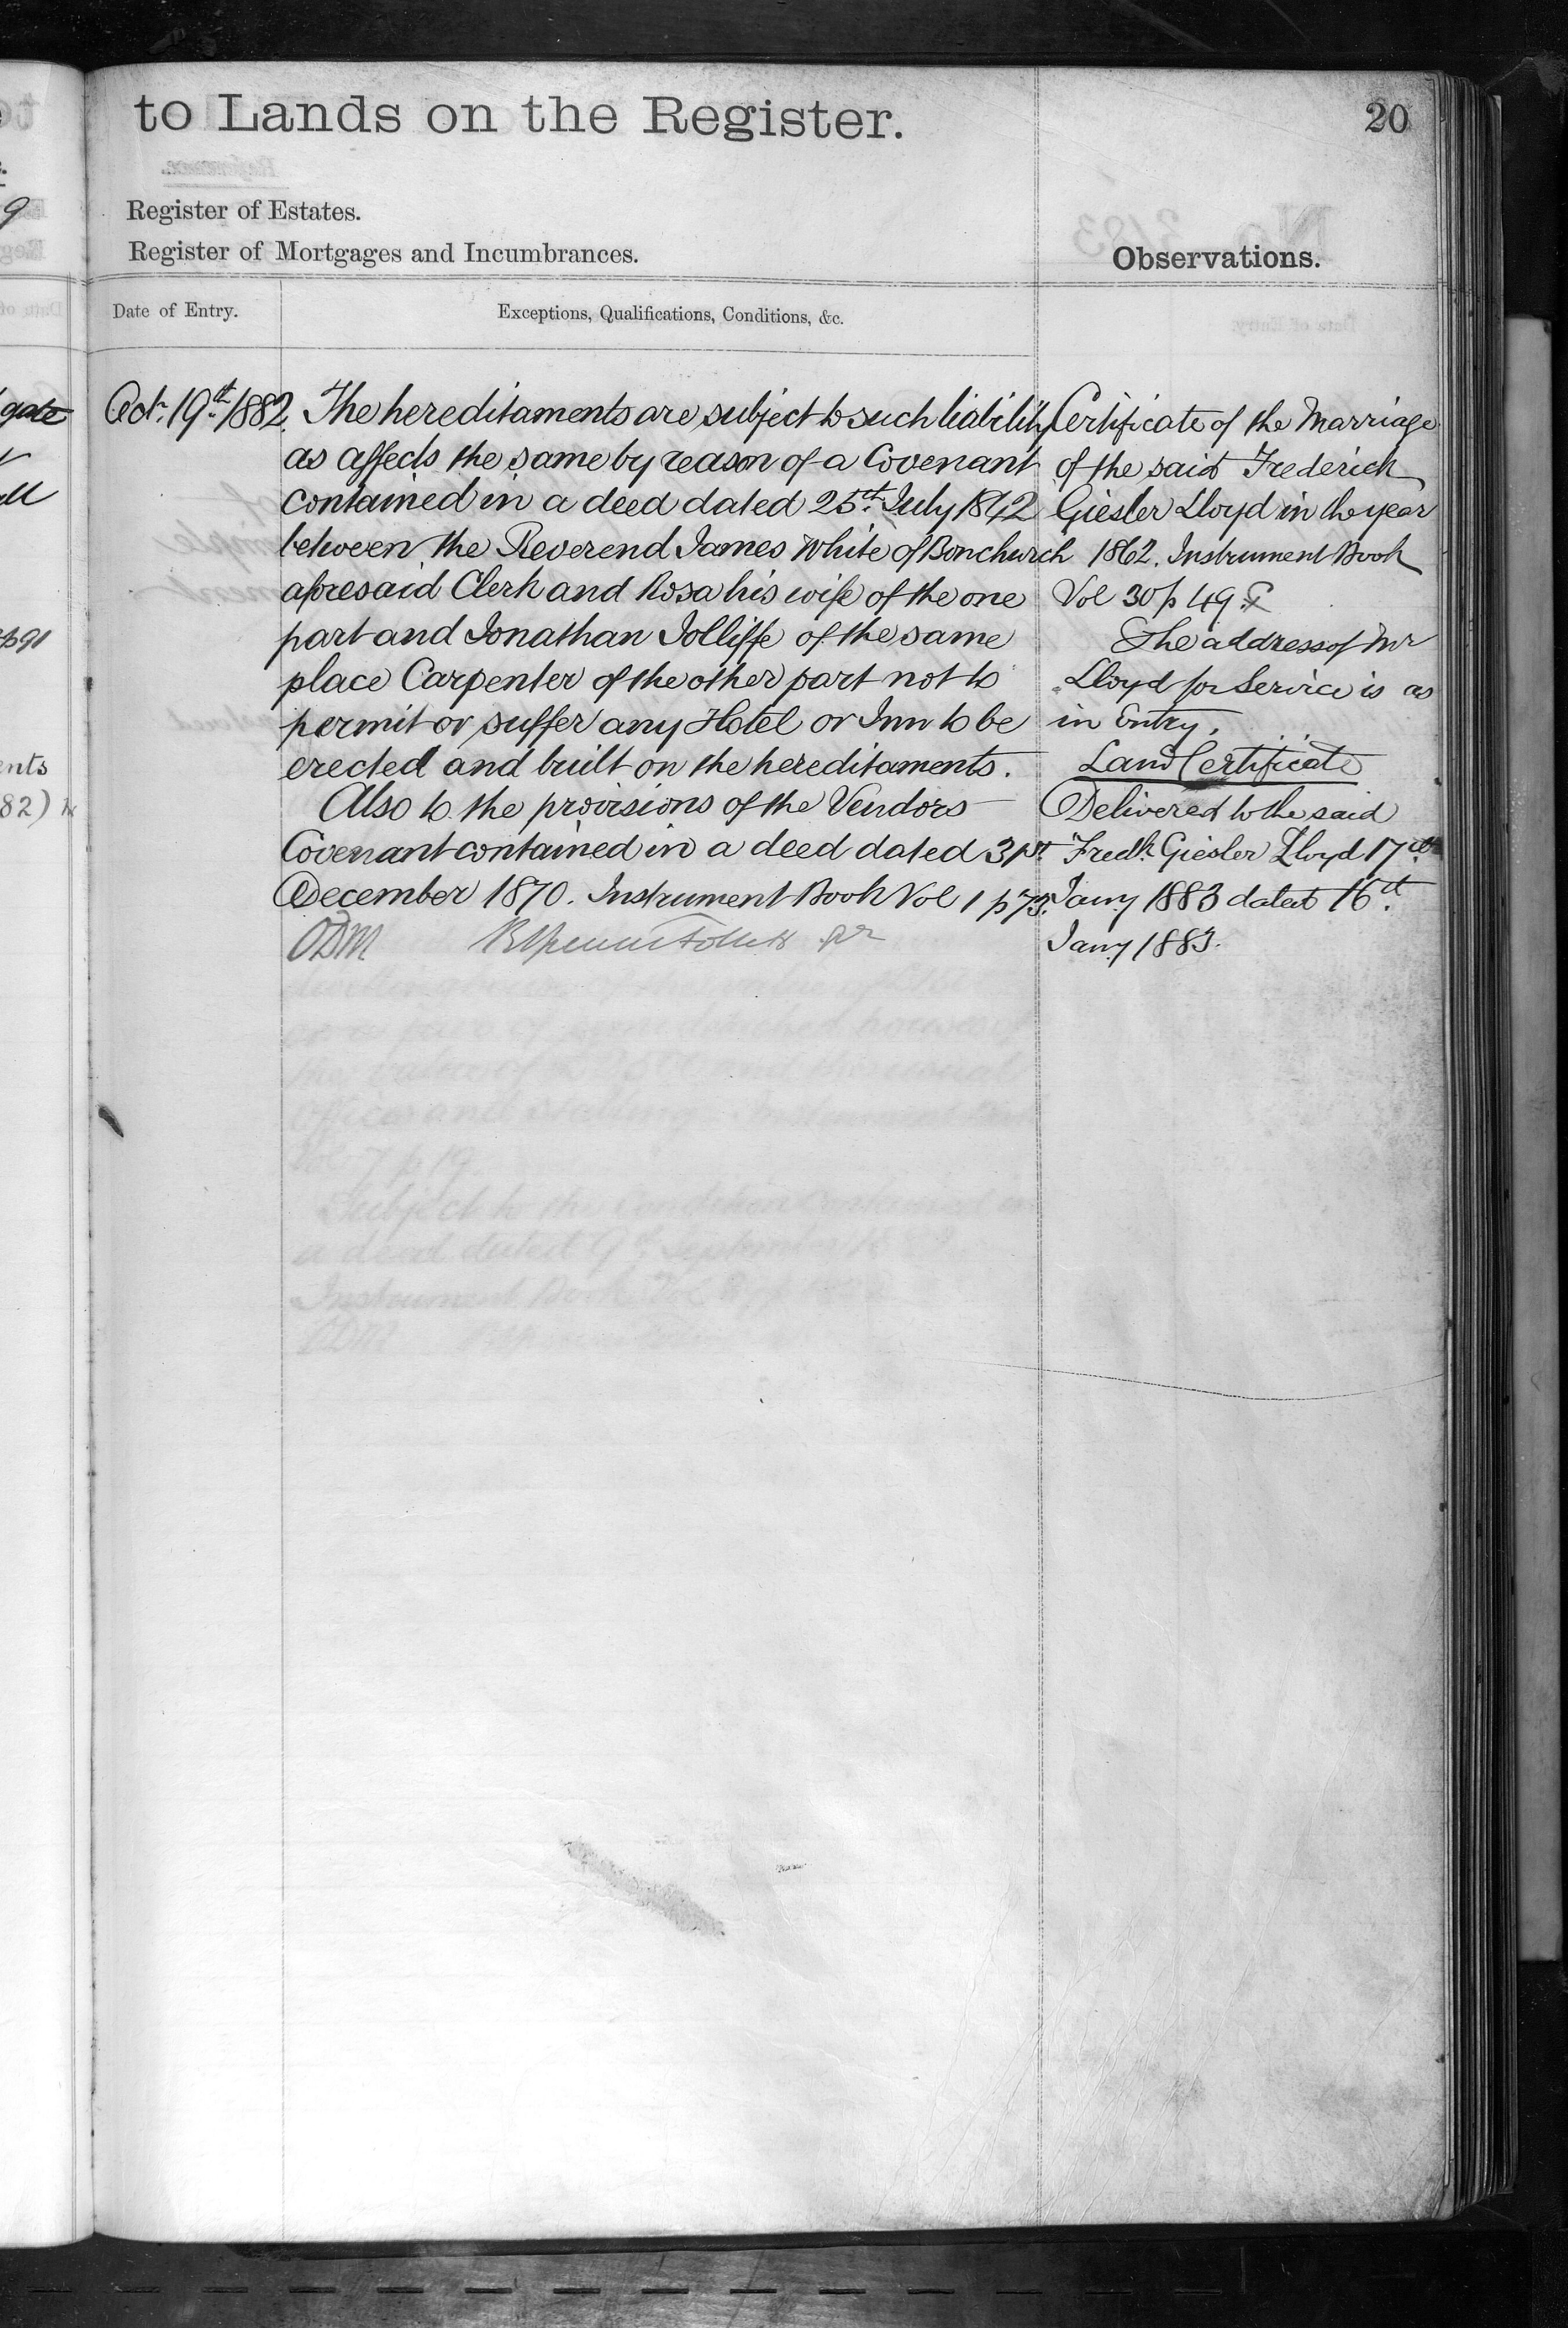 to Lands on the Register.
20
Register of Estates.
Register of Mortgages and Incumbrances.
Observations.
Date of Entry.
Exceptions, Qualifications, Conditions, &c.
Oct. 19th 1882.
The hereditaments are subject to such liability
as affects the same by reason of a Covenant
contained in a deed dated 25th July 1842
between the Reverend James White of Bonchurch
aforesaid Clerk and Rosa his wife of the one
part and Jonathan Jolliffe of the same
place Carpenter of the other part not to
permit or suffer any Hotel or Inn to be
erected and built on the hereditaments.
Also to the provisions of the Vendors
Covenant contained in a deed dated 31st
December 1870. Instrument Book Vol 1 p 73.
Certificate of the Marriage
of the said Frederick
Giesler Lloyd in the year
1862. Instrument Book
Vol 30 p 49.
The address of Mr
Lloyd for Service is as
in Entry.
Land Certificate
Delivered to the said
Fredk. Giesler Lloyd 17th
Jany 1883 dated 16th
Jany 1883.
gate
ents
82)